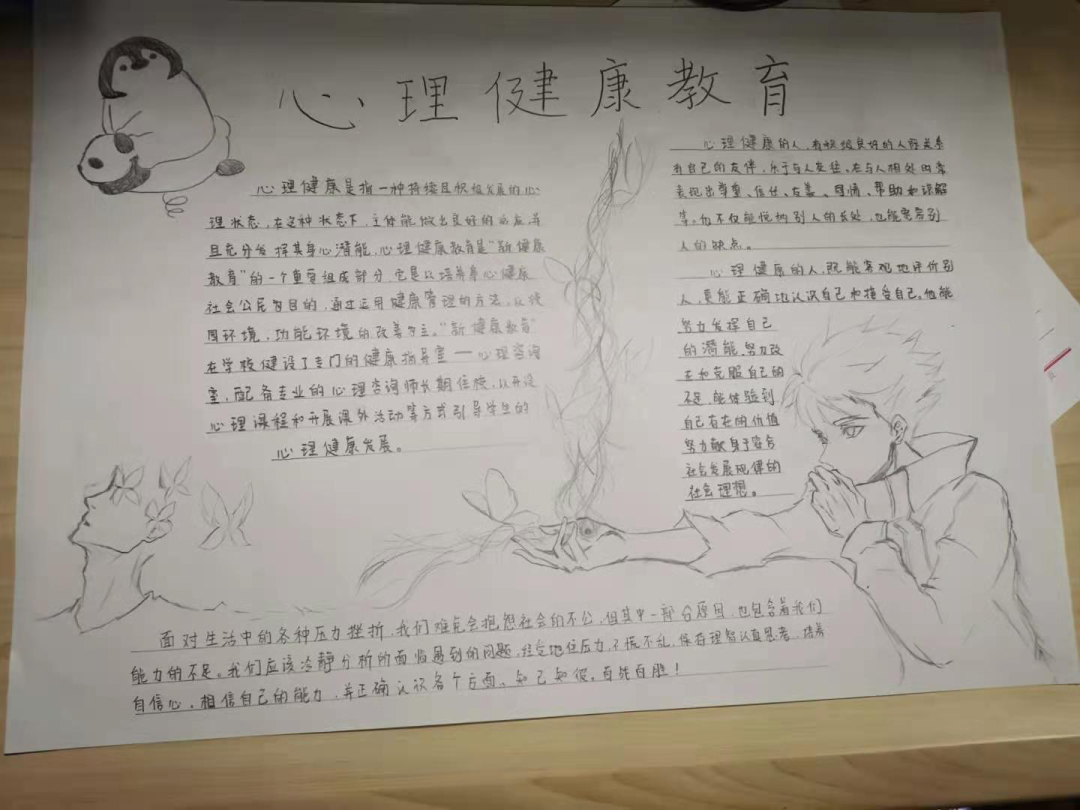 心理健康教育
心理健康是指一种持续且积极发展的心
理状态,在这种状态下,主体能做出良好的适应,并
且充分发挥其身心潜能。心理健康教育是“新健康
教育”的一个重要组成部分,它是以培养身心健康
社会公民为目的,通过运用健康管理的方法,以校
园环境,功能环境的改善为主。“新健康教育”
在学校健设了专门的健康指导室——心理咨询
室,配备专业的心理咨询师长期住校,以开设
心理课程和开展课外活动等方式引导学生的
心理健康发展。
心理健康的人,有积极良好的人际关系
有自己的友伴,乐于与人交往。在与人相处时常
表现出尊重、信任、友善、同情、帮助和谅解
等,他不仅能悦纳别人的长处,也能宽容别
人的缺点。
心理健康的人,既能客观地评价别
人,更能正确地认识自己和接受自己。他能
努力发挥自己
的潜能,努力改
正和克服自己的
不足,能体验到
自己存在的价值
努力献身于安合
社会发展规律的
社会理想。
面对生活中的各种压力挫折,我们难免会抱怨社会的不公,但其中一部分原因,也包含着我们
能力的不足。我们应该冷静分析的面临遇到的问题,住压力,不慌不乱,保存理智认真思考,培养
自信心,相信自己的能力,并正确认识各个方面。知己知彼。百战百胜!